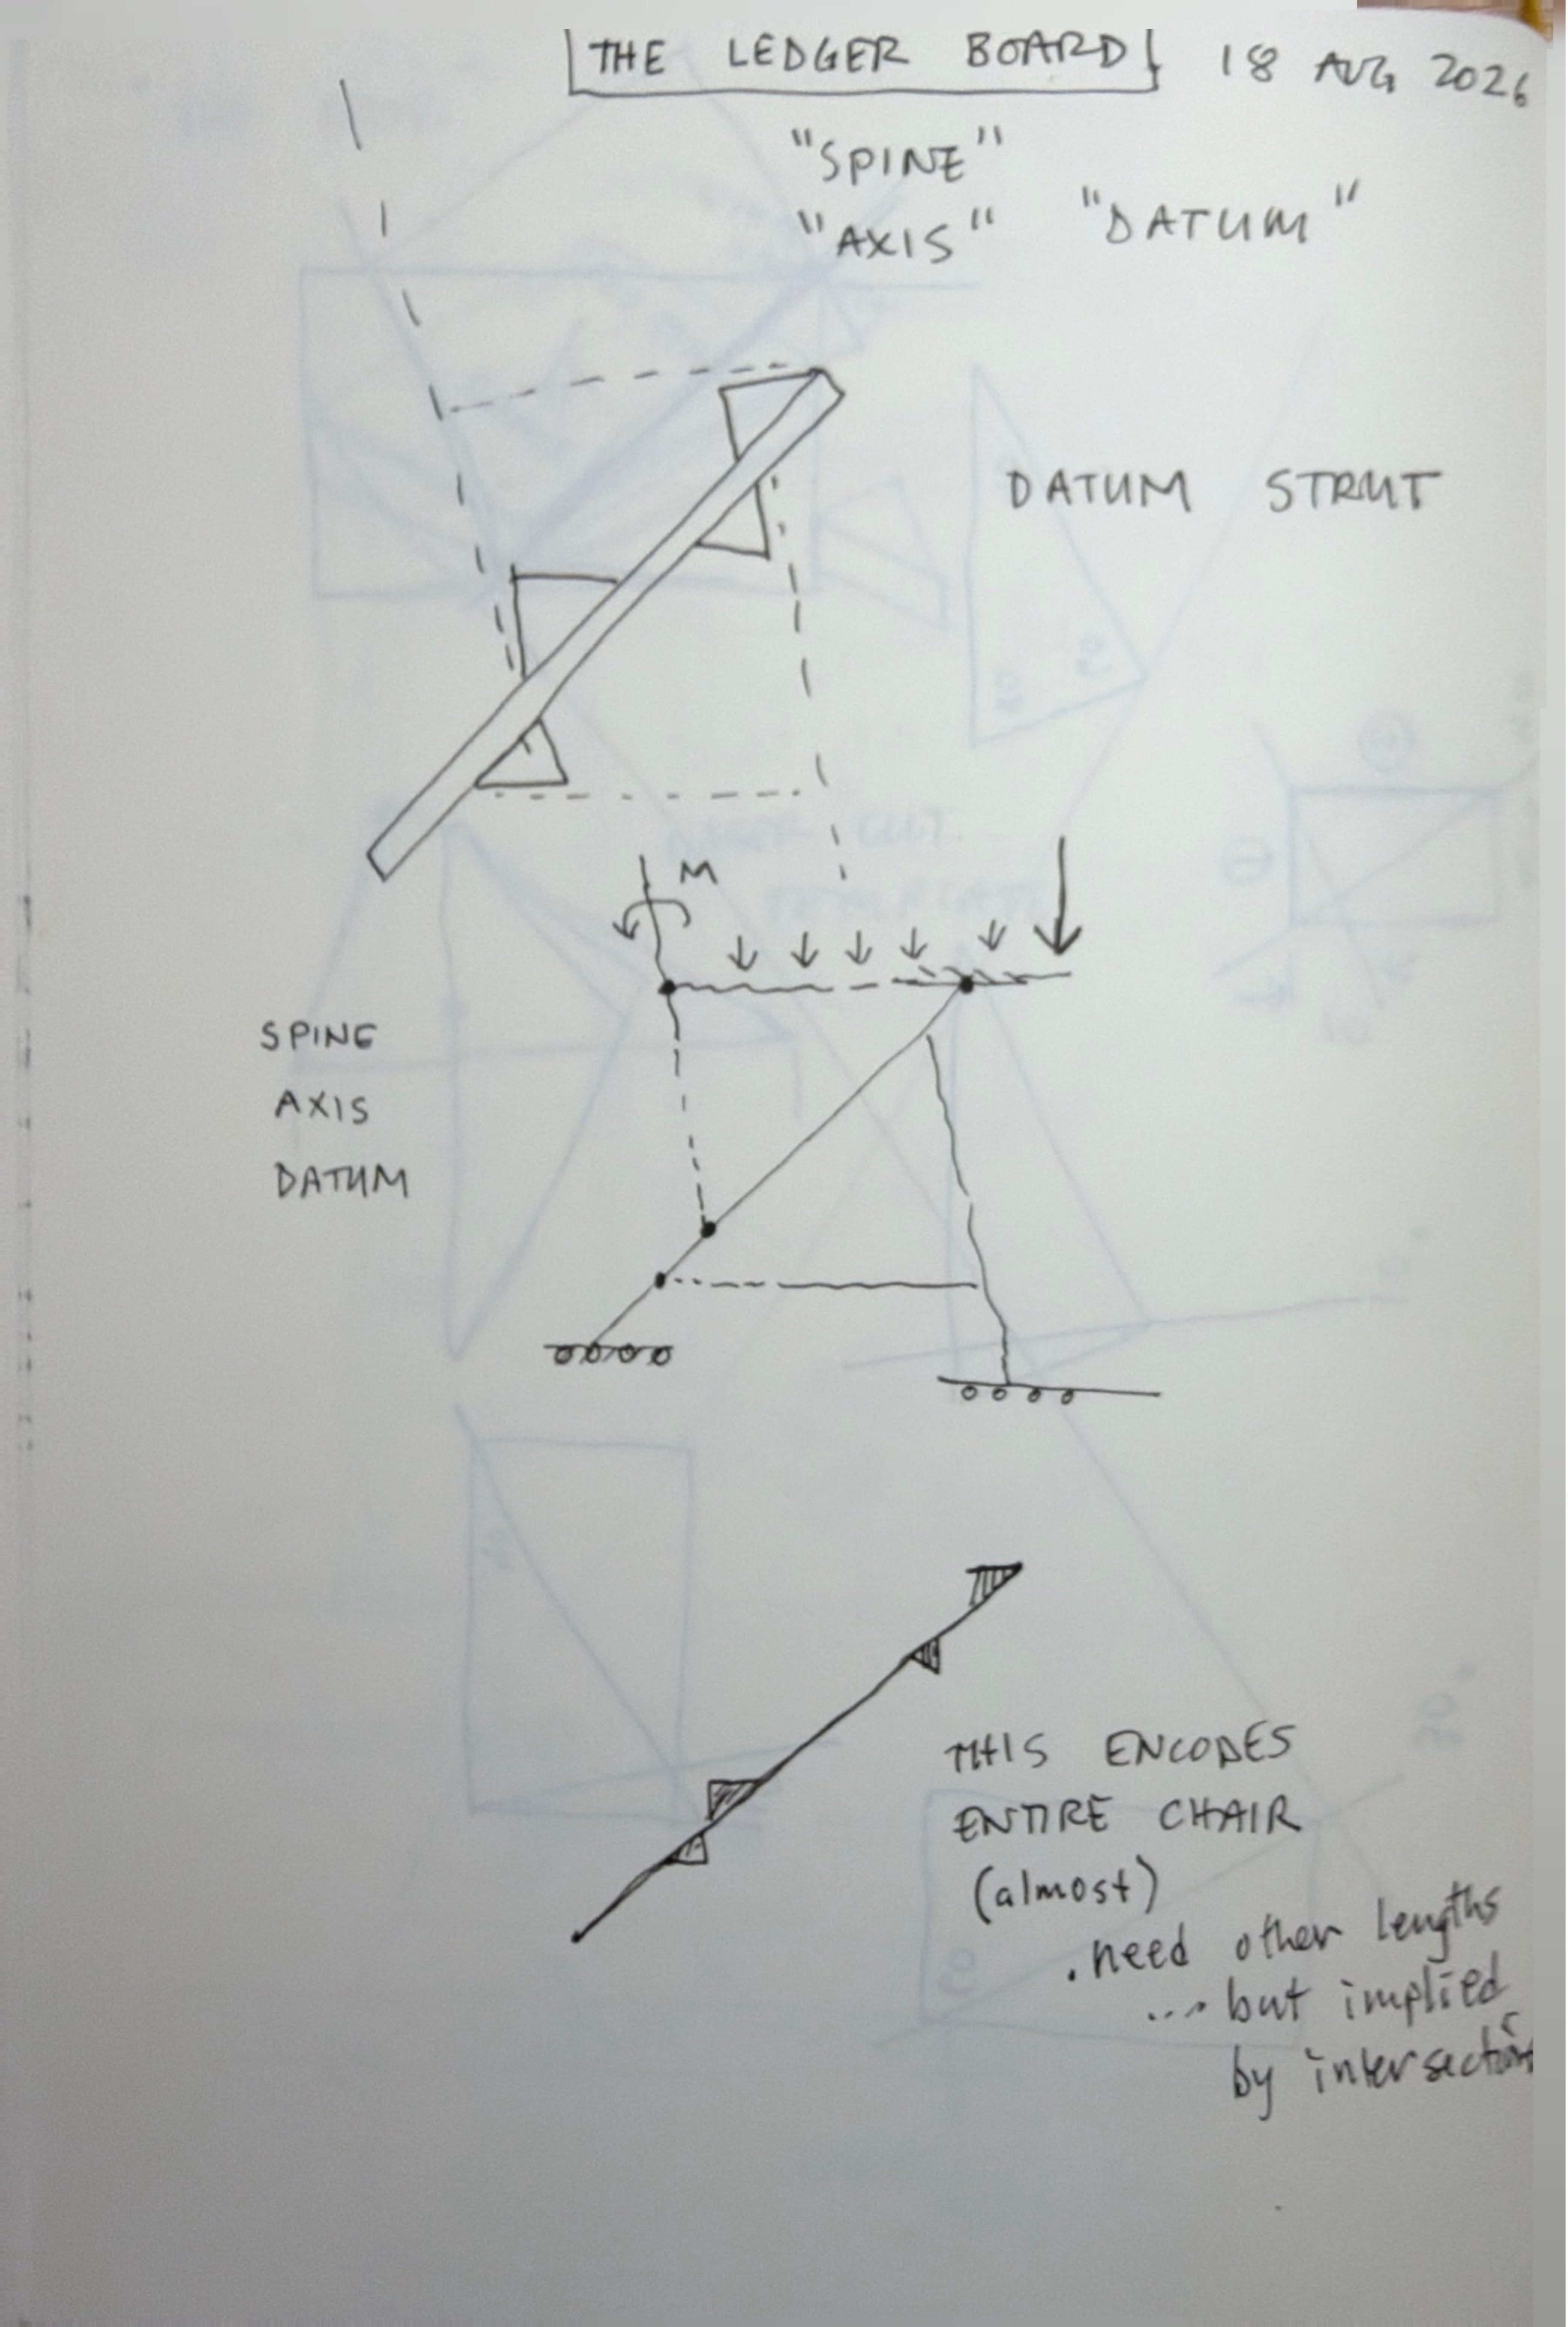 THE LEDGER BOARD 18 AUG 2026
"SPINE"
"AXIS" "DATUM"
DATUM STRUT
M
SPINE
AXIS
DATUM
THIS ENCODES
ENTIRE CHAIR
(almost)
. need other lengths
.... but implied
by intersections